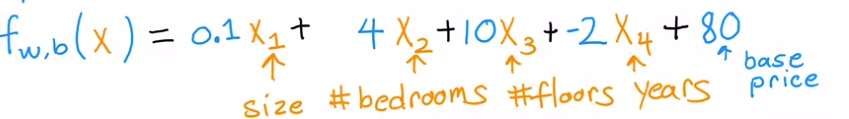 f_{w,b}(x) = 0.1 x₁ + 4 x₂ + 10 x₃ + -2 x₄ + 80
↑ ↑ ↑ ↑ ↑
size #bedrooms #floors years base
price